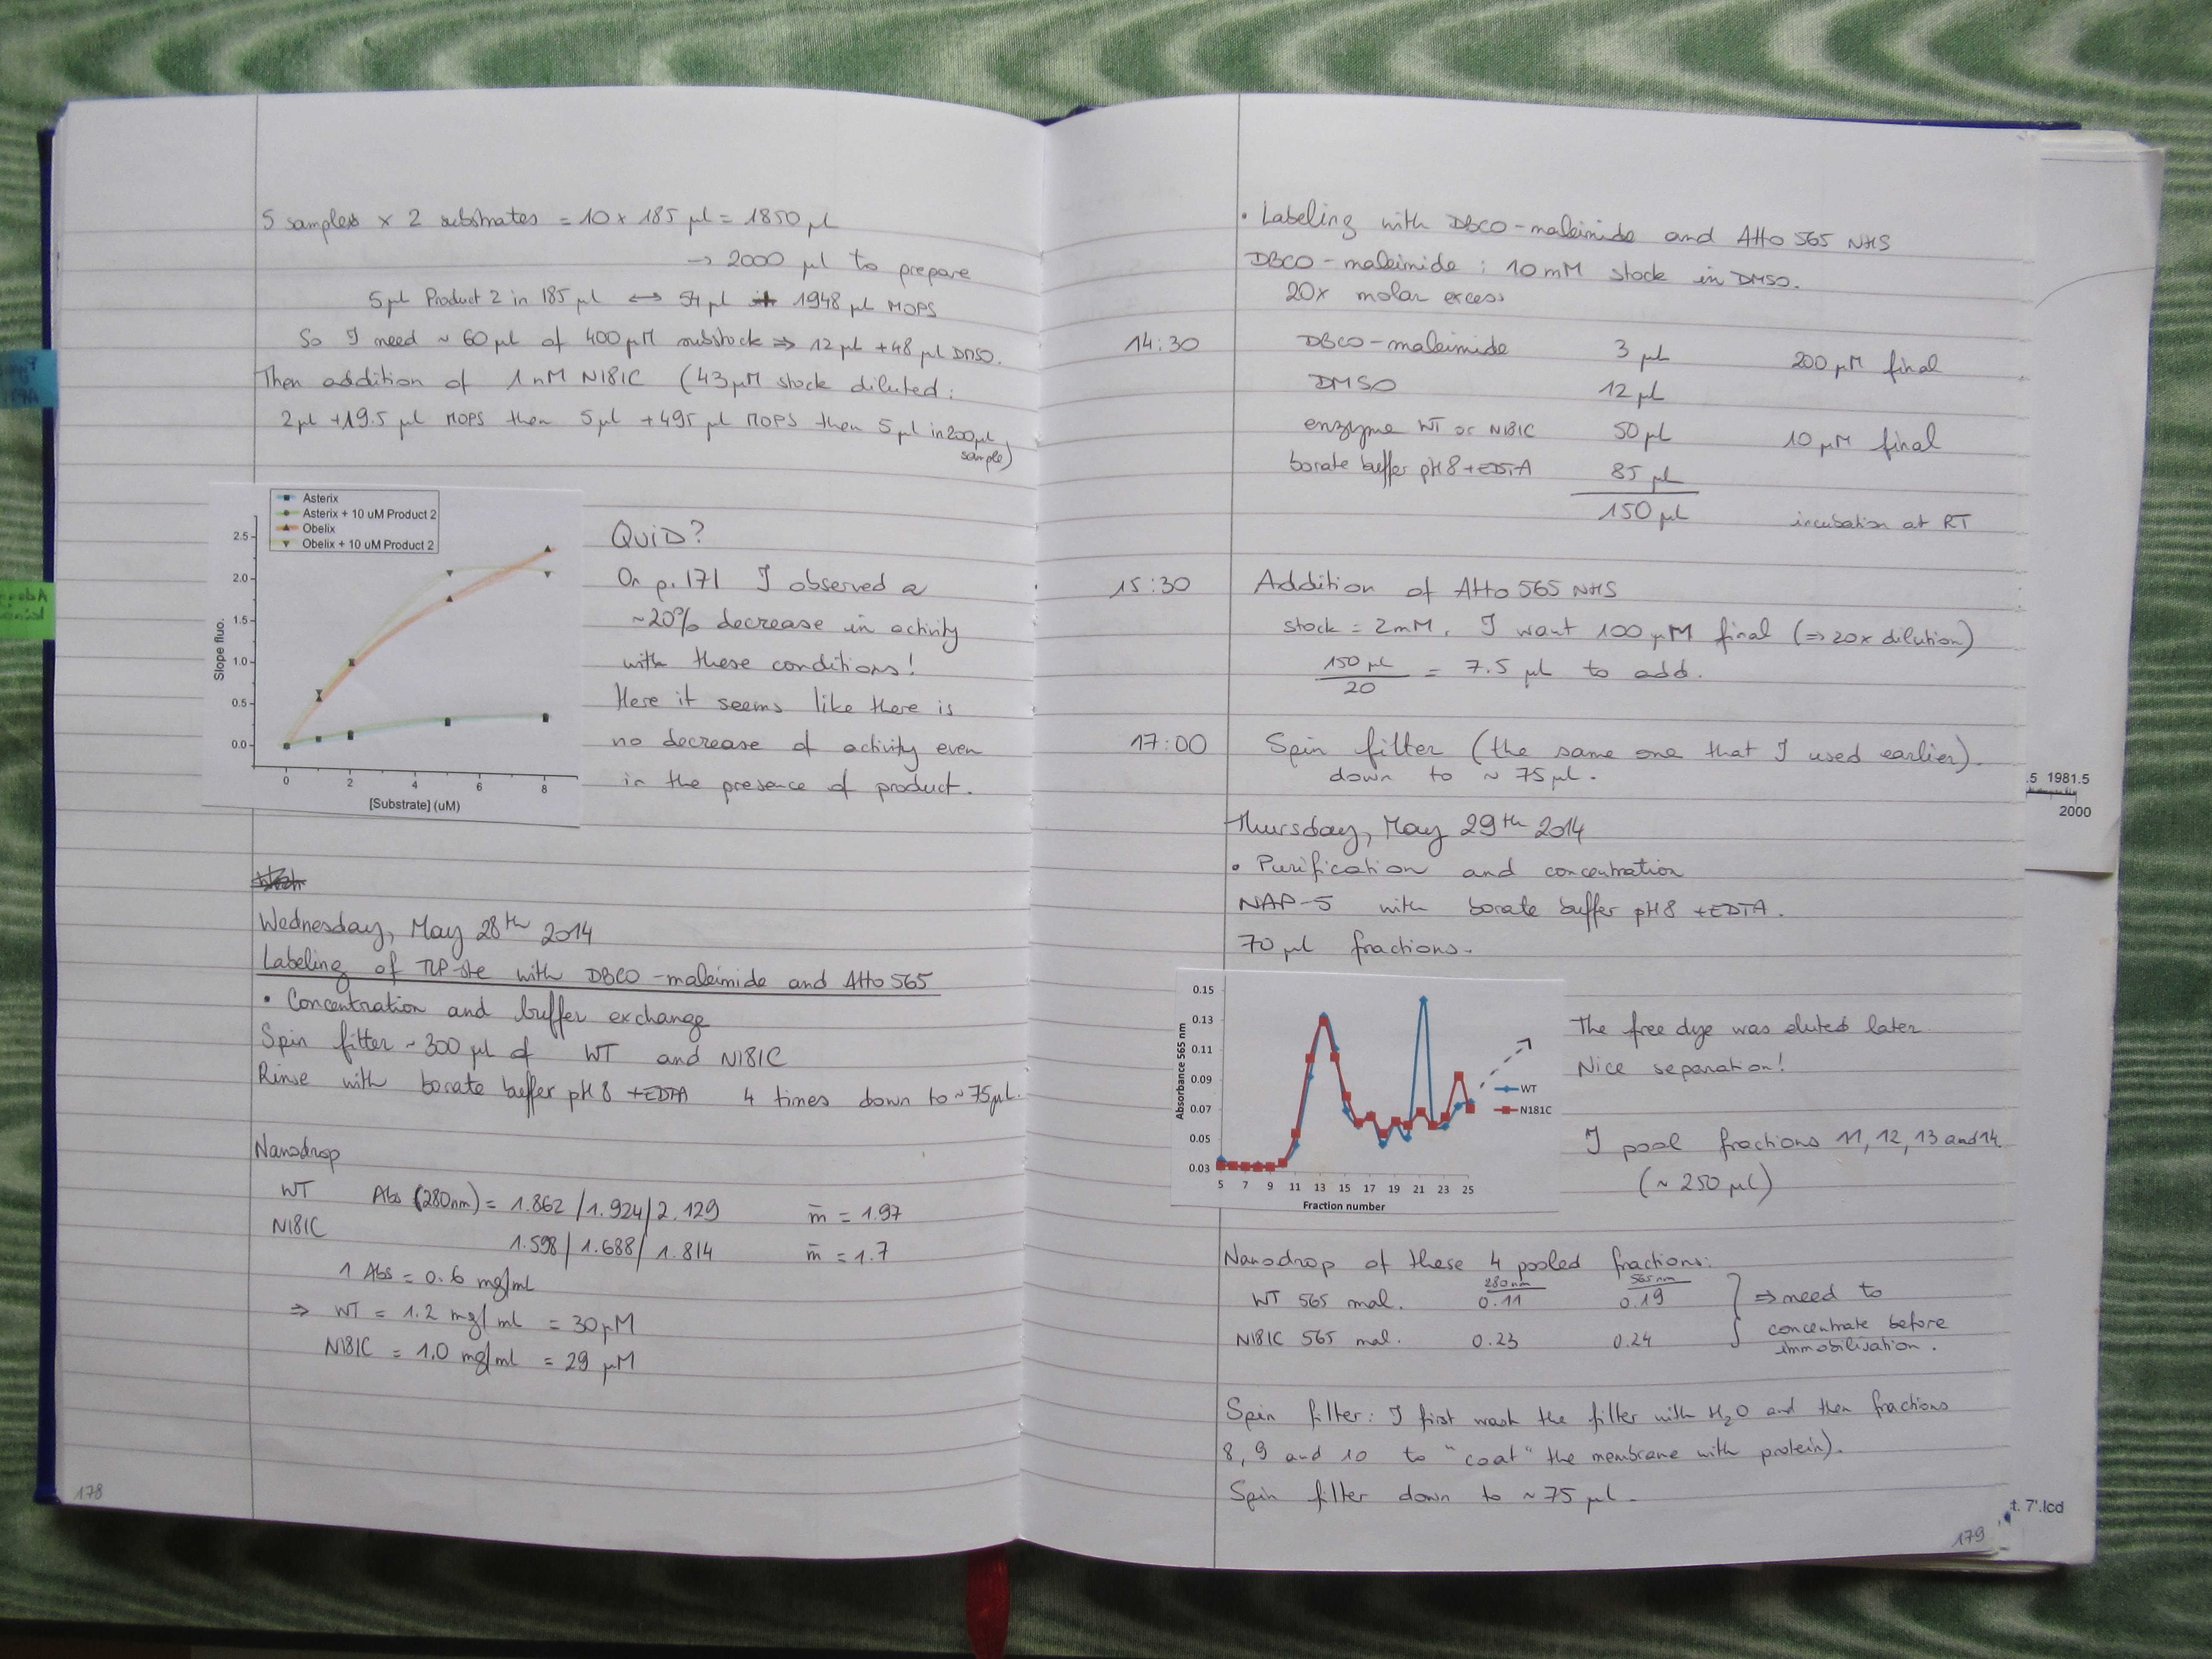 5 samples x 2 substrates = 10 x 185 µl = 1850 µl
→ 2000 µl to prepare
5 µl Product 2 in 185 µl ↔ 54 µl 1948 µl MOPS
So I need ~ 60 µl of 400 µM substock ⇒ 12 µl + 48 µl DMSO.
Then addition of 1 nM N181C (43 µM stock diluted:
2 µl + 19.5 µl MOPS then 5 µl + 495 µl MOPS then 5 µl in 200 µl
sample)
Asterix
Asterix + 10 uM Product 2
Obelix
Obelix + 10 uM Product 2
2.5
2.0
1.5
1.0
0.5
0.0
Slope fluo.
0 2 4 6 8
[Substrate] (uM)
QUID?
On p. 171 I observed a
~20% decrease in activity
with these conditions!
Here it seems like there is
no decrease of activity even
in the presence of product.
Wednesday, May 28th 2014
Labeling of TLP-ste with DBCO-maleimide and Atto 565
• Concentration and buffer exchange
Spin filter ~ 300 µl of WT and N181C
Rinse with borate buffer pH 8 + EDTA 4 times down to ~ 75 µl.
Nanodrop
WT Abs (280nm) = 1.862 / 1.924 / 2.129 m̄ = 1.97
N181C 1.598 / 1.688 / 1.814 m̄ = 1.7
1 Abs = 0.6 mg/ml
⇒ WT = 1.2 mg/ml = 30 µM
N181C = 1.0 mg/ml = 29 µM
178
• Labeling with DBCO-maleimide and Atto 565 NHS
DBCO-maleimide : 10 mM stock in DMSO.
20x molar excess
14:30 DBCO-maleimide 3 µl 200 µM final
DMSO 12 µl
enzyme WT or N181C 50 µl 10 µM final
borate buffer pH 8 + EDTA 85 µl
150 µl incubation at RT
15:30 Addition of Atto 565 NHS
stock = 2mM. I want 100 µM final (⇒ 20x dilution)
150 µl / 20 = 7.5 µl to add.
17:00 Spin filter (the same one that I used earlier)
down to ~ 75 µl.
Thursday, May 29th 2014
• Purification and concentration
NAP-5 with borate buffer pH 8 + EDTA.
70 µl fractions.
0.15
0.13
0.11
0.09
0.07
0.05
0.03
Absorbance 565 nm
5 7 9 11 13 15 17 19 21 23 25
Fraction number
WT
N181C
The free dye was eluted later
Nice separation!
I pool fractions 11, 12, 13 and 14
(~ 250 µl)
Nanodrop of these 4 pooled fractions:
280nm 565nm
WT 565 mal. 0.11 0.19 ⇒ need to
N181C 565 mal. 0.23 0.24 concentrate before
immobilisation.
Spin filter: I first wash the filter with H2O and then fractions
8, 9 and 10 to "coat" the membrane with protein).
Spin filter down to ~ 75 µl.
179
.5 1981.5
2000
t. 7'.lcd